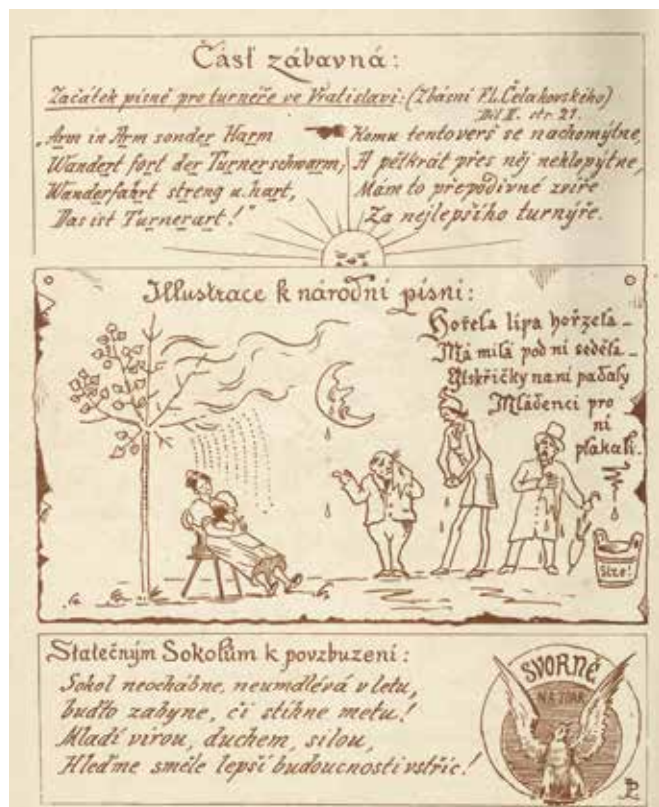 Část zábavná:
Začátek písně pro turnéře ve Vratislavi: (Zbásní F.L. Čelakovského)
Díl II. str. 21.
„Arm in Arm sonder Harm
Wandert fort der Turnerschwarm;
Wanderfahrt streng u. hart,
Das ist Turnerart!"
Komu tento verš se nachomýtne,
A pětkrát přes něj neklopýtne,
Mám to přepodivné zvíře
Za nejlepšího turnýře.
Illustrace k národní písni:
Hořela lípa hořzela –
Má milá pod ní seděla –
Jiskřičky na ní padaly
Mládenci pro
ní
plakali.
Slze!
Statečným Sokolům k povzbuzení:
Sokol neochabne, neumdlévá v letu,
buďto zahyne, či stihne metu!
Mladí vírou, duchem, silou,
Hleďme směle lepší budoucnosti vstříc!
SVORNĚ
NA ZDAR